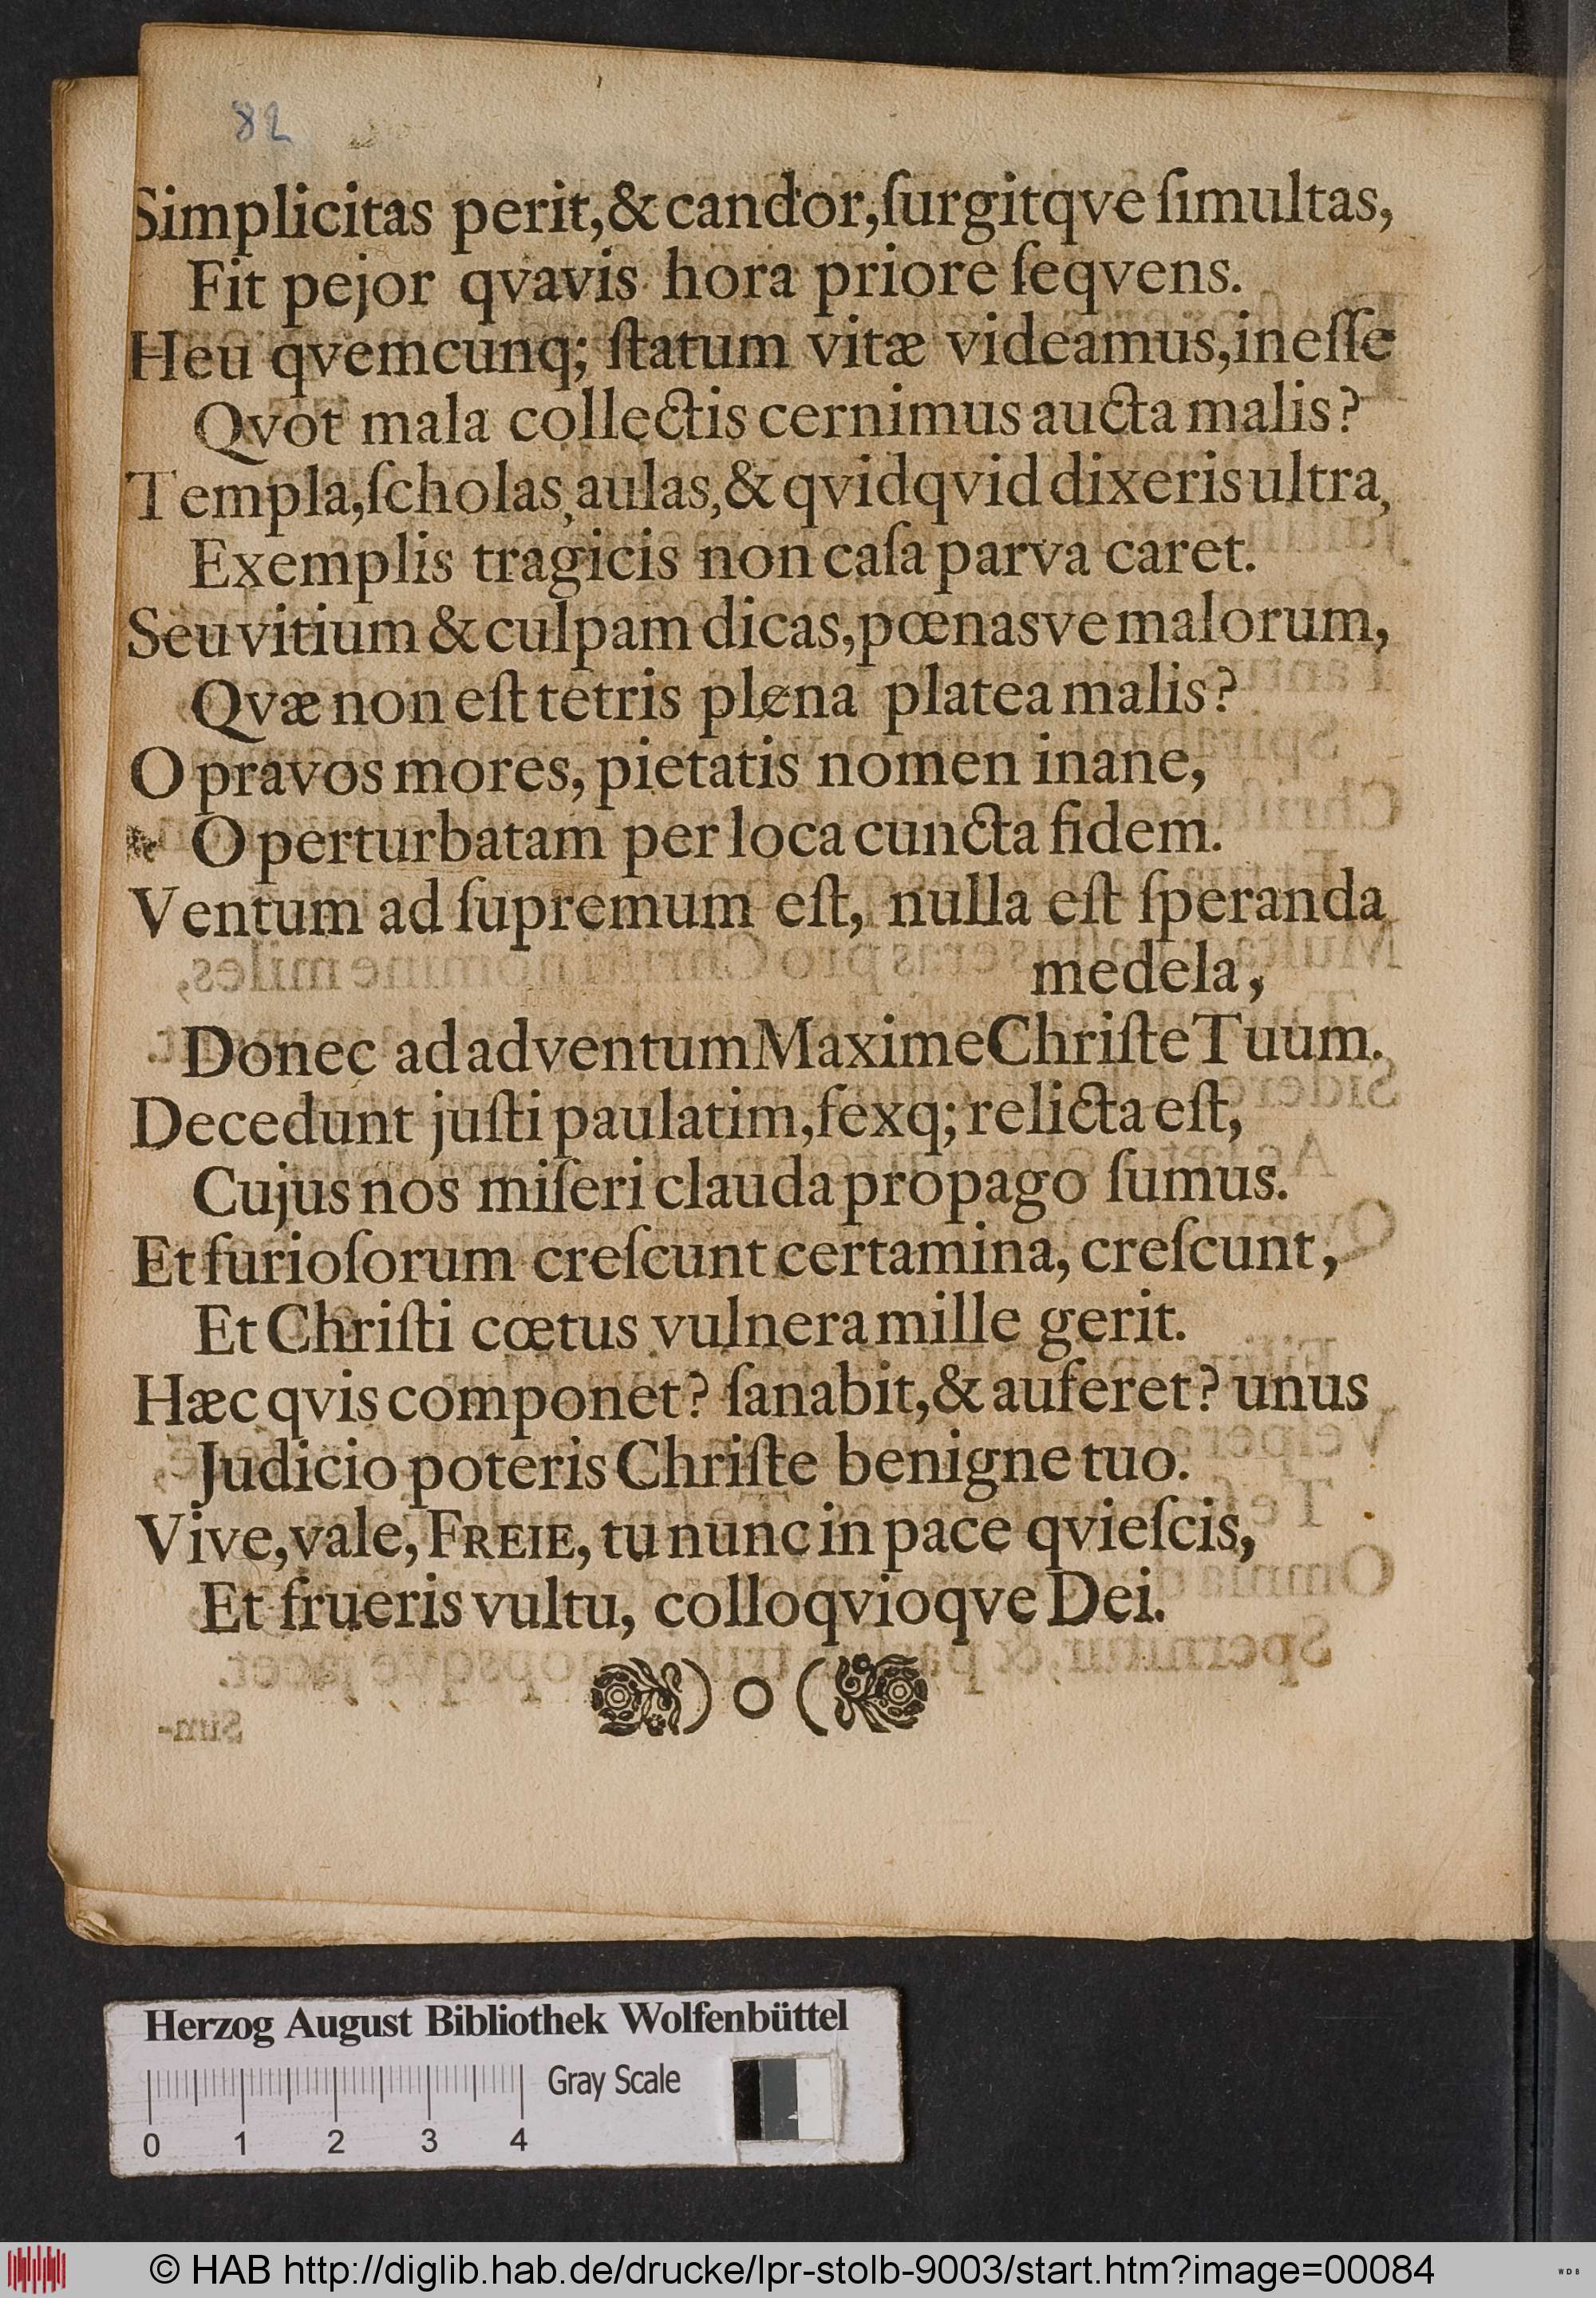 82
Simplicitas perit,& candor,ſurgitqve ſimultas,
Fit pejor qvavis hora priore ſeqvens.
Heu qvemcunq; ſtatum vitæ videamus,ineſſe
Qvot mala collectis cernimus aucta malis?
Templa,ſcholas,aulas,& qvidqvid dixeris ultra,
Exemplis tragicis non caſa parva caret.
Seu vitium & culpam dicas,pœnasve malorum,
Qvæ non eſt tetris plena platea malis?
O pravos mores, pietatis nomen inane,
O perturbatam per loca cuncta fidem.
Ventum ad ſupremum eſt, nulla eſt ſperanda
medela,
Donec ad adventum Maxime Chriſte Tuum.
Decedunt juſti paulatim,fexq; relicta eſt,
Cujus nos miſeri clauda propago ſumus.
Et furioſorum creſcunt certamina, creſcunt,
Et Chriſti cœtus vulnera mille gerit.
Hæc qvis componet? ſanabit,& auferet? unus
Judicio poteris Chriſte benigne tuo.
Vive,vale, FREIE, tu nunc in pace qvieſcis,
Et frueris vultu, colloqvioqve Dei.
) o (
Herzog August Bibliothek Wolfenbüttel
Gray Scale
0 1 2 3 4
© HAB http://diglib.hab.de/drucke/lpr-stolb-9003/start.htm?image=00084
WDB